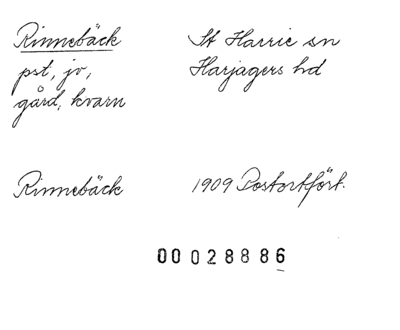 Rinnebäck
St Harrie sn
pst, jv,
Harjagers hd
gård, kvarn
Rinnebäck
1909 Postortfört.
00028886